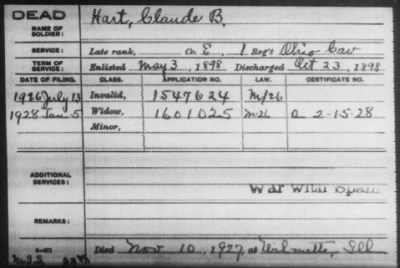 DEAD
NAME OF SOLDIER: Hart, Claude B.
SERVICE: Late rank, Co. E, 1 Reg't Ohio Cav
TERM OF SERVICE: Enlisted May 3, 1898 Discharged Oct 23, 1898
DATE OF FILING. CLASS. APPLICATION NO. LAW. CERTIFICATE NO.
1926 July 13 Invalid, 1547624 M/26
1928 Jan-5 Widow, 1601025 M-26 a 2-15-28
Minor,
ADDITIONAL SERVICES:
War With Spain
REMARKS:
Died Nov 10, 1927, at Wilmette, Ill